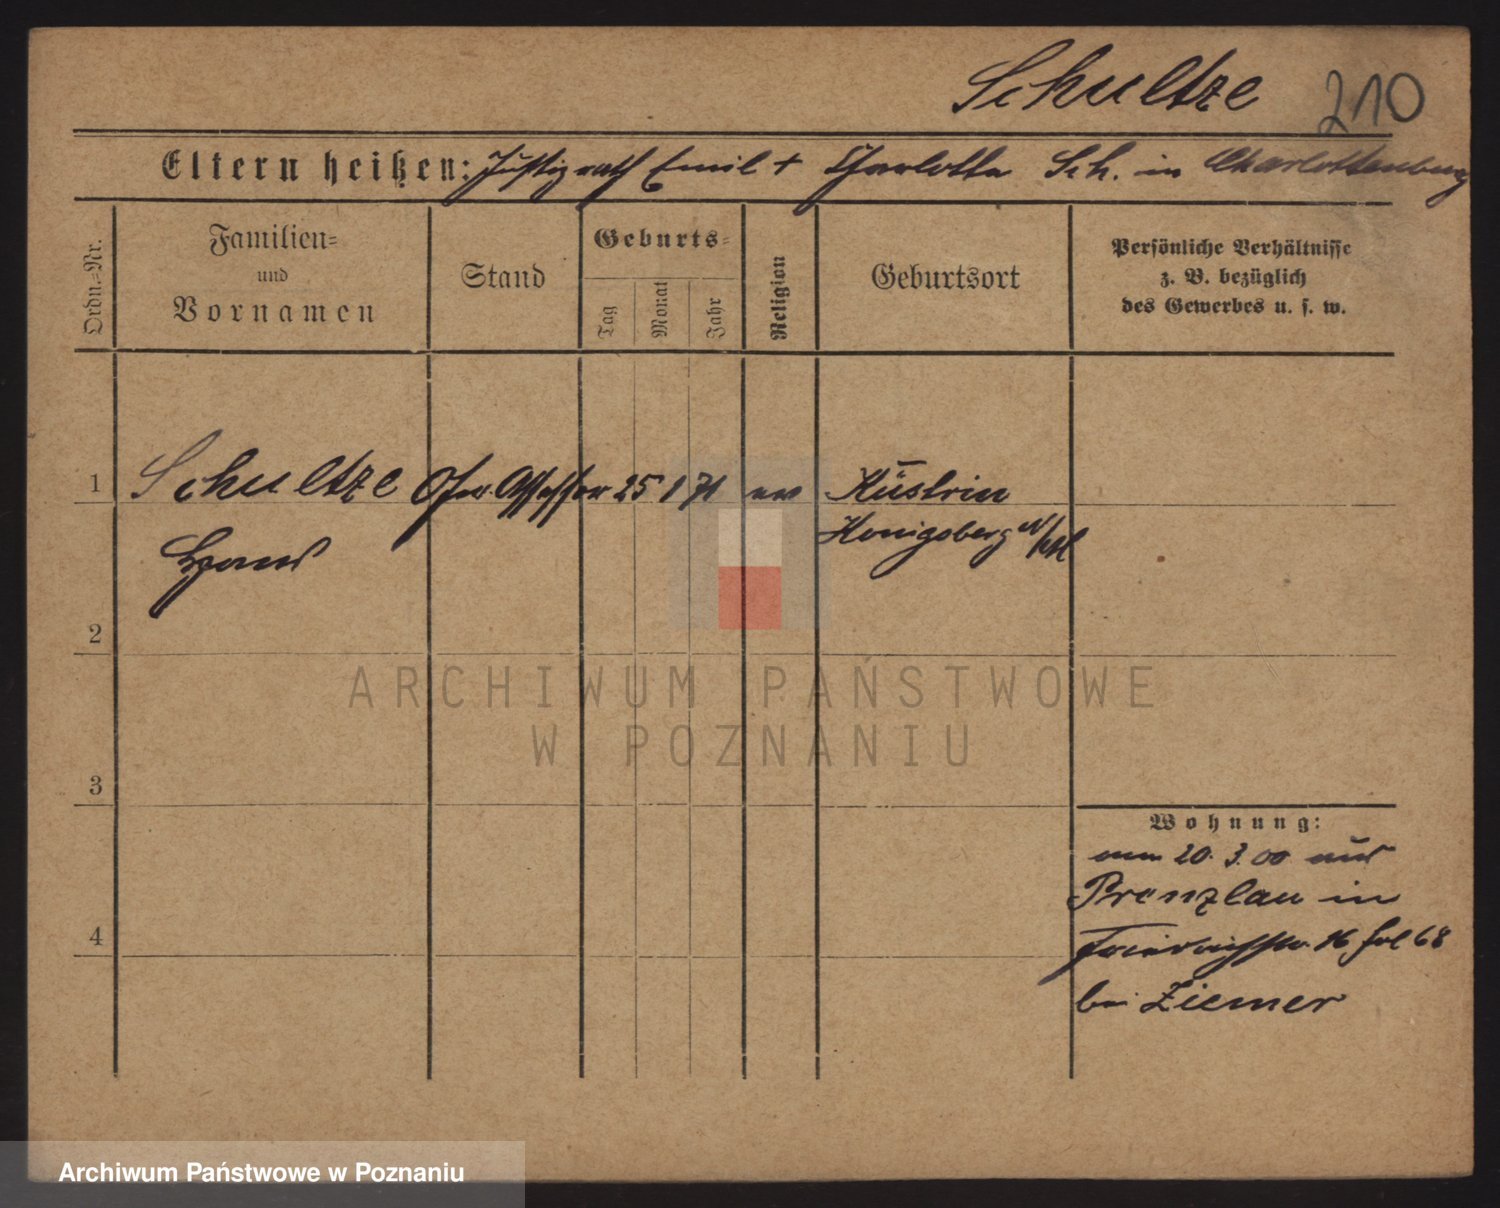 Schultze 210
Eltern heißen: Justizrath Emil + Charlotte Sch. in Charlottenburg
Ordn.-Nr.
Familien-
und
Vornamen
Stand
Geburts-
Tag
Monat
Jahr
Religion
Geburtsort
Persönliche Verhältnisse
z. B. bezüglich
des Gewerbes u. s. w.
1 Schultze Assessor 25 1 71 ev Küstrin
Hans Königsberg N/M
2
3
4
Wohnung:
20. 3. 00 aus
Prenzlau in
Friedrichstr. 16 bei
bei Ziemer
ARCHIWUM PAŃSTWOWE
W POZNANIU
Archiwum Państwowe w Poznaniu